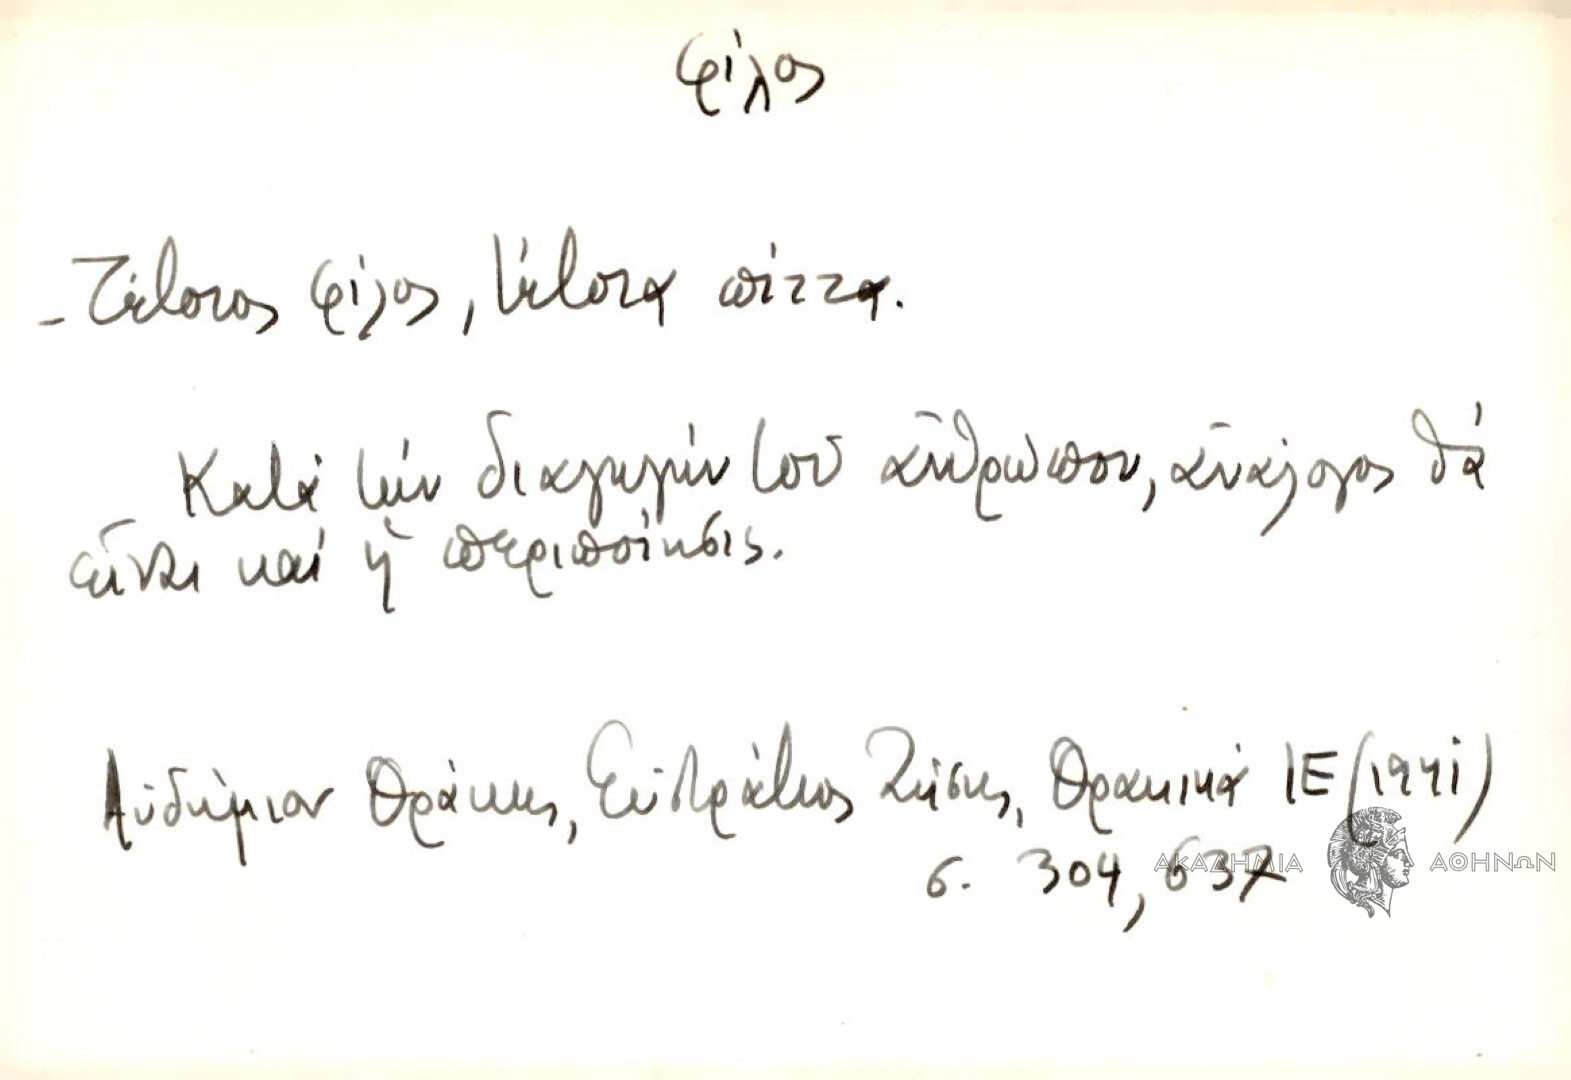 φίλος
- Τέτοιος φίλος, τέτοια πίττα.
Κατά τήν διαγωγήν τοῦ ἀνθρώπου, ἀνάλογος θά
εἶναι καί ἡ περιποίησις.
Αὐδήμιον Θράκης, Εὐστράτιος Ζήσης, Θρακικά ΙΕ (1941)
σ. 304, 637
ΑΚΑΔΗΜΙΑ ΑΘΗΝΩΝ